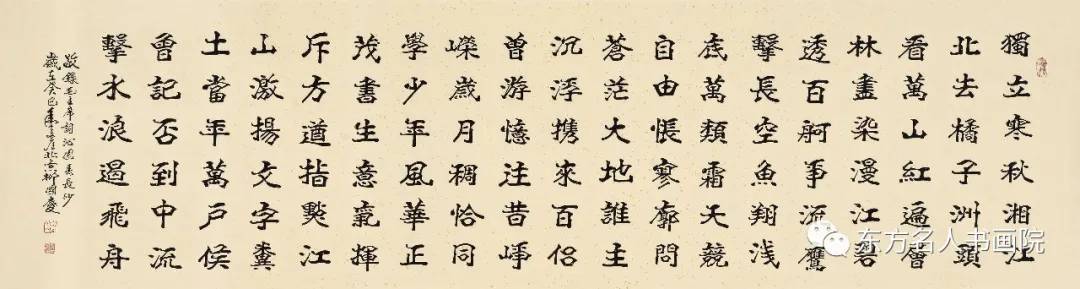 獨立寒秋湘江
北去橘子洲頭
看萬山紅遍層
林盡染漫江碧
透百舸爭流鷹
擊長空魚翔浅
底萬類霜天競
自由悵寥廓問
蒼茫大地誰主
沉浮携來百侣
曾游憶往昔崢
嶸歲月稠恰同
學少年風華正
茂書生意氣揮
斥方遒指點江
山激揚文字糞
土當年萬户侯
曾記否到中流
擊水浪遏飛舟
敬錄毛主席詞沁園春長沙
歲在癸巳 北京柳國慶
东方名人书画院